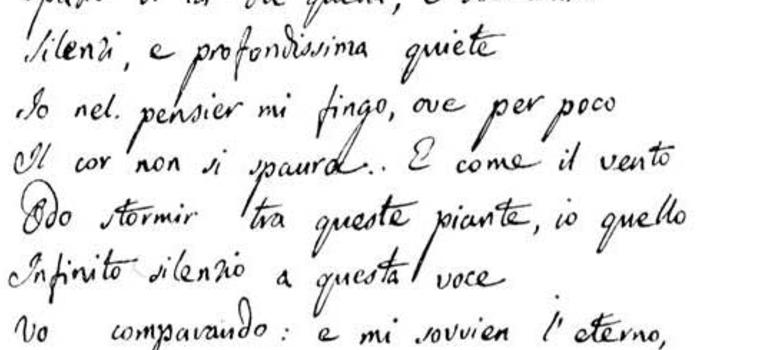 di là da quella, e
Silenzi, e profondissima quiete
Io nel. pensier mi fingo, ove per poco
Il cor non si spaura.. E come il vento
Odo stormir tra queste piante, io quello
Infinito silenzio a questa voce
Vo comparando: e mi sovvien l'eterno,